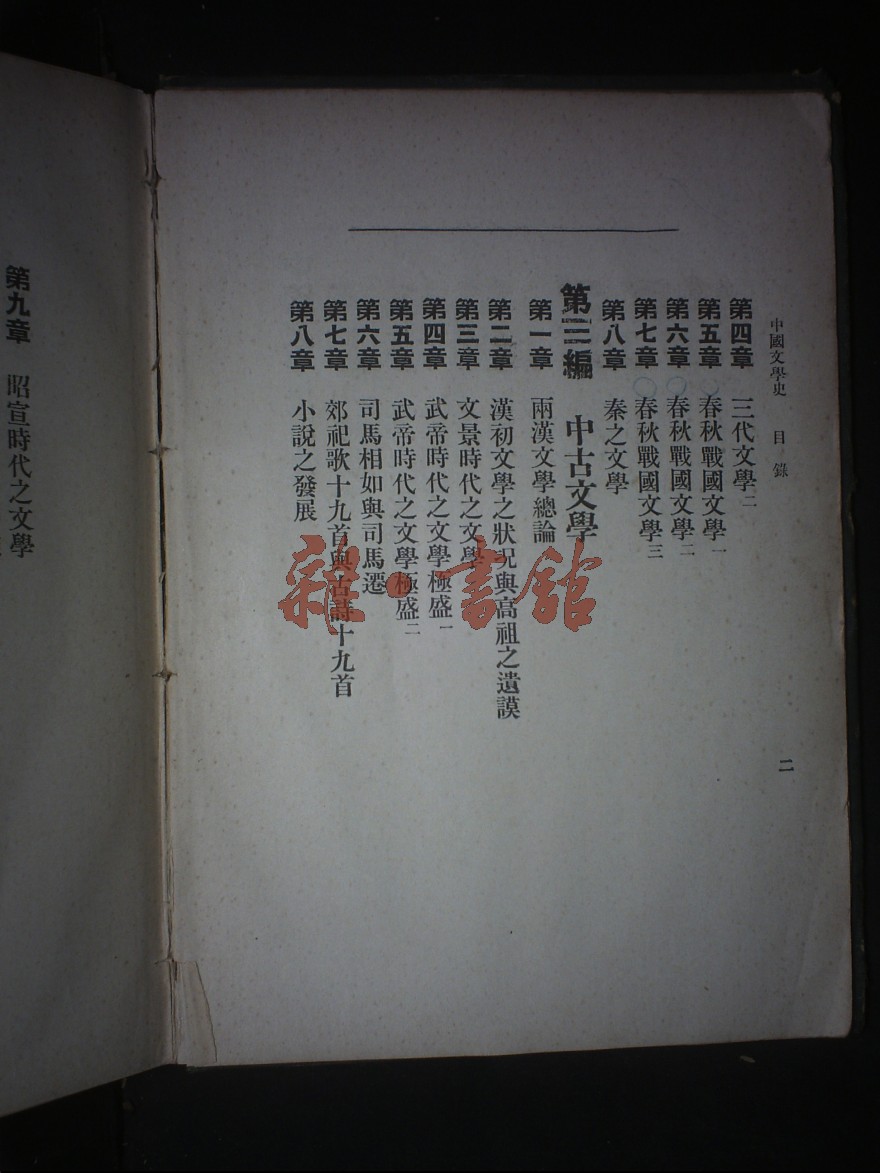 中國文學史 目錄
二
第四章 三代文學二
第五章 春秋戰國文學一
第六章 春秋戰國文學二
第七章 春秋戰國文學三
第八章 秦之文學
第三編 中古文學
第一章 兩漢文學總論
第二章 漢初文學之狀況與高祖之遺謨
第三章 文景時代之文學
第四章 武帝時代之文學極盛一
第五章 武帝時代之文學極盛二
第六章 司馬相如與司馬遷
第七章 郊祀歌十九首與古詩十九首
第八章 小說之發展
第九章 昭宣時代之文學
雜·書館